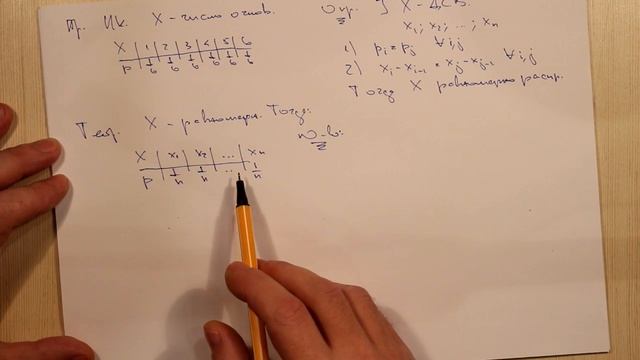 Пр. ИК. X - число очков.
X | 1 | 2 | 3 | 4 | 5 | 6
p | 1/6 | 1/6 | 1/6 | 1/6 | 1/6 | 1/6
Опр. ] X - ДСВ.
x₁; x₂; ...; xₙ
1) pᵢ = pⱼ ∀i,j
2) xᵢ - xᵢ₋₁ = xⱼ - xⱼ₋₁ ∀i,j
Тогда X равномерно распр.
Теор. X - равномерн. Тогда:
X | x₁ | x₂ | ... | xₙ
p | 1/n | 1/n | ... | 1/n
Д-во: